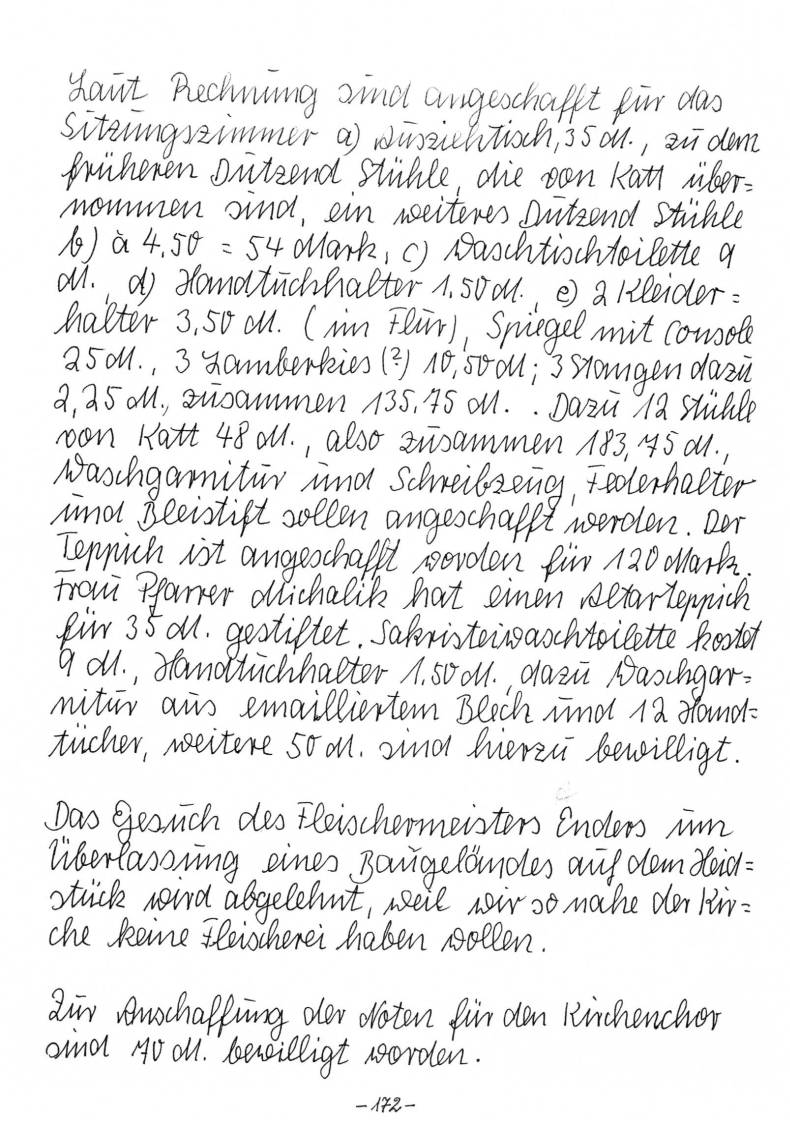 Laut Rechnung sind angeschafft für das
Sitzungszimmer a) Ausziehtisch, 35 M., zu dem
früheren Dutzend Stühle, die von Katt über=
nommen sind, ein weiteres Dutzend Stühle
b) à 4.50 = 54 Mark, c) Waschtischtoilette 9
M., d) Handtuchhalter 1.50 M., e) 2 Kleider=
halter 3,50 M. (im Flur), Spiegel mit Console
25 M., 3 Lamberkies (?) 10,50 M; 3 Stangen dazu
2,25 M., zusammen 135.75 M. . Dazu 12 Stühle
von Katt 48 M., also zusammen 183,75 M.,
Waschgarnitur und Schreibzeug, Federhalter
und Bleistift sollen angeschafft werden. Der
Teppich ist angeschafft worden für 120 Mark.
Frau Pfarrer Michalik hat einen Altarteppich
für 35 M. gestiftet. Sakristeiwaschtoilette kostet
9 M., Handtuchhalter 1.50 M., dazu Waschgar=
nitur aus emailliertem Blech und 12 Hand=
tücher, weitere 50 M. sind hierzu bewilligt.
Das Gesuch des Fleischermeisters Enders um
Überlassung eines Baugeländes auf dem Heid=
stück wird abgelehnt, weil wir so nahe der Kir=
che keine Fleischerei haben wollen.
Zur Anschaffung der Noten für den Kirchenchor
sind 70 M. bewilligt worden.
-172-